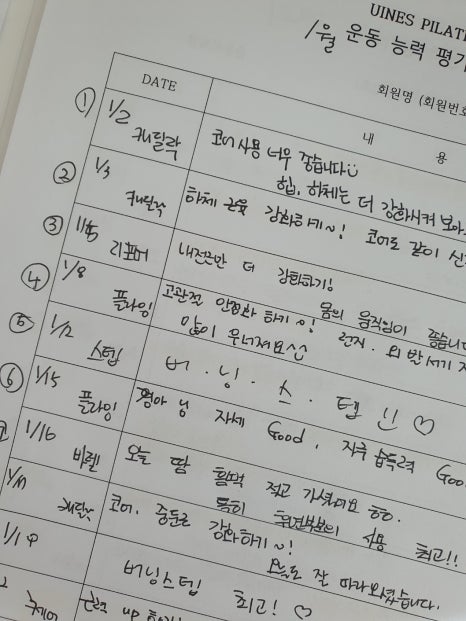 UINES PILAT
1월 운동 능력 평가
회원명 (회원번호
DATE
내 용
① 1/2 캐딜락
코어 사용 너무 좋습니다
힙, 하체는 더 강화시켜 보아
② 1/3 캐딜락
하체 근육 강화하기~! 코어로 같이 신
③ 1/5 리포머
내전근만 더 강화하기!
④ 1/8 플라잉
몸의 움직임이 좋습니다
고관절 안정화 하기~! 런지, 외발서기
많이 무너져요^^
⑤ 1/12 스텝
버.닝.스.텝!! ♡
⑥ 1/15 플라잉
영아님 자세 Good, 자극 습득력 Goo
1/16 바렐
오늘 땀 흠뻑 적고 가셨어요
특히 측면부분의 사용 최고!!
캐딜락
코어, 중둔근
강화하기~!
오늘도 잘 따라오셨습니다.
1/19
버닝스텝 최고! ♡
근력 up